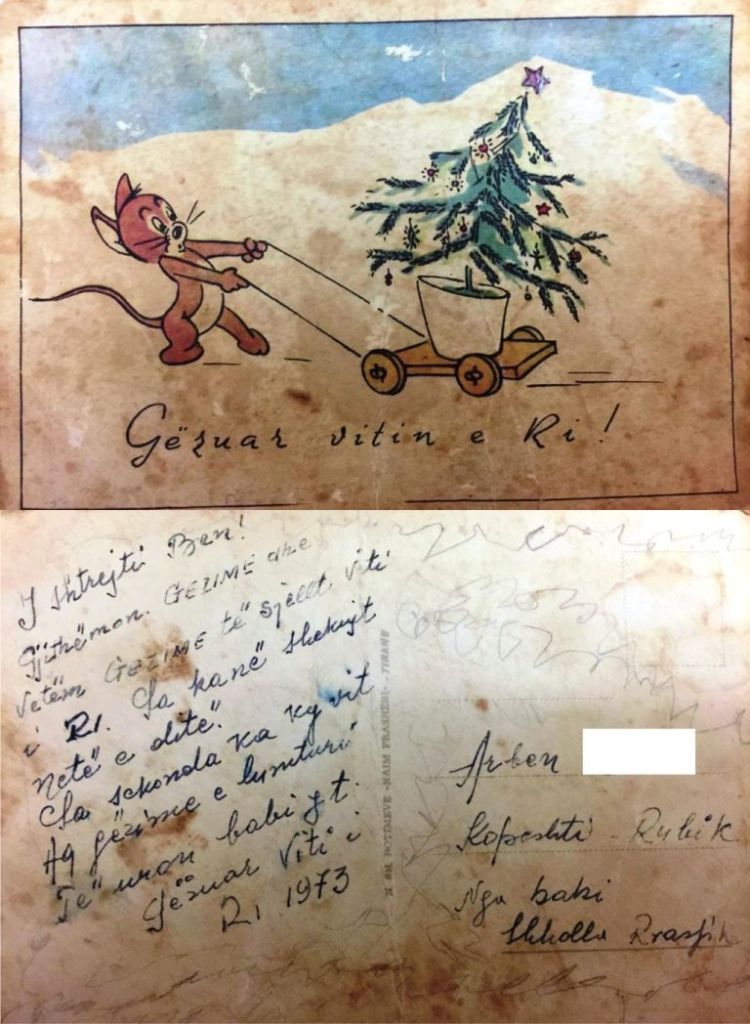 Gëzuar vitin e Ri!
I shtrejti Ben!
Gjithëmon. GEZIME dhe
vetëm GEZIME të sjellt viti
i RI. Sa kanë shekujt
netë e ditë.
Sa sekonda ka ky vit
Aq gëzime e lumturi
Të uron babi yt.
Gëzuar Viti i
RI 1973
N. SH. BOTIMEVE -NAIM FRASHËRI- TIRANE
Arben
Kopeshti - Rubik
Nga babi
Shkolla